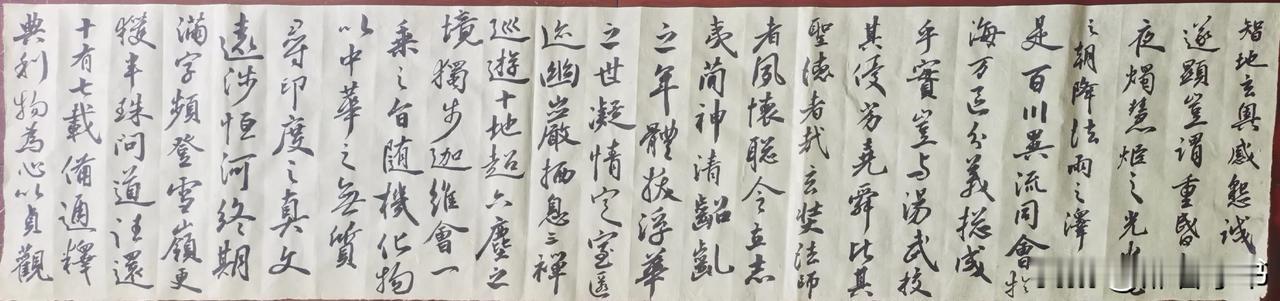 智地玄奥感懇誠
遂顯豈謂重昏
夜燭慧炬之光
之朝降法雨之澤
是百川異流同會於
海万區分義揔成
乎實豈与湯武校
其優劣堯舜比其
聖德者哉玄奘法師
者夙懷聡令立志
夷簡神清齠齔
之年體拔浮華
之世凝情定室匿
迹幽巖栖息三禪
巡遊十地超六塵之
境獨步迦維會一
乘之旨随機化物
以中華之無質
尋印度之真文
遠涉恒河終期
滿字頻登雪嶺更
獲半珠問道往還
十有七載備通釋
典利物為心以貞觀